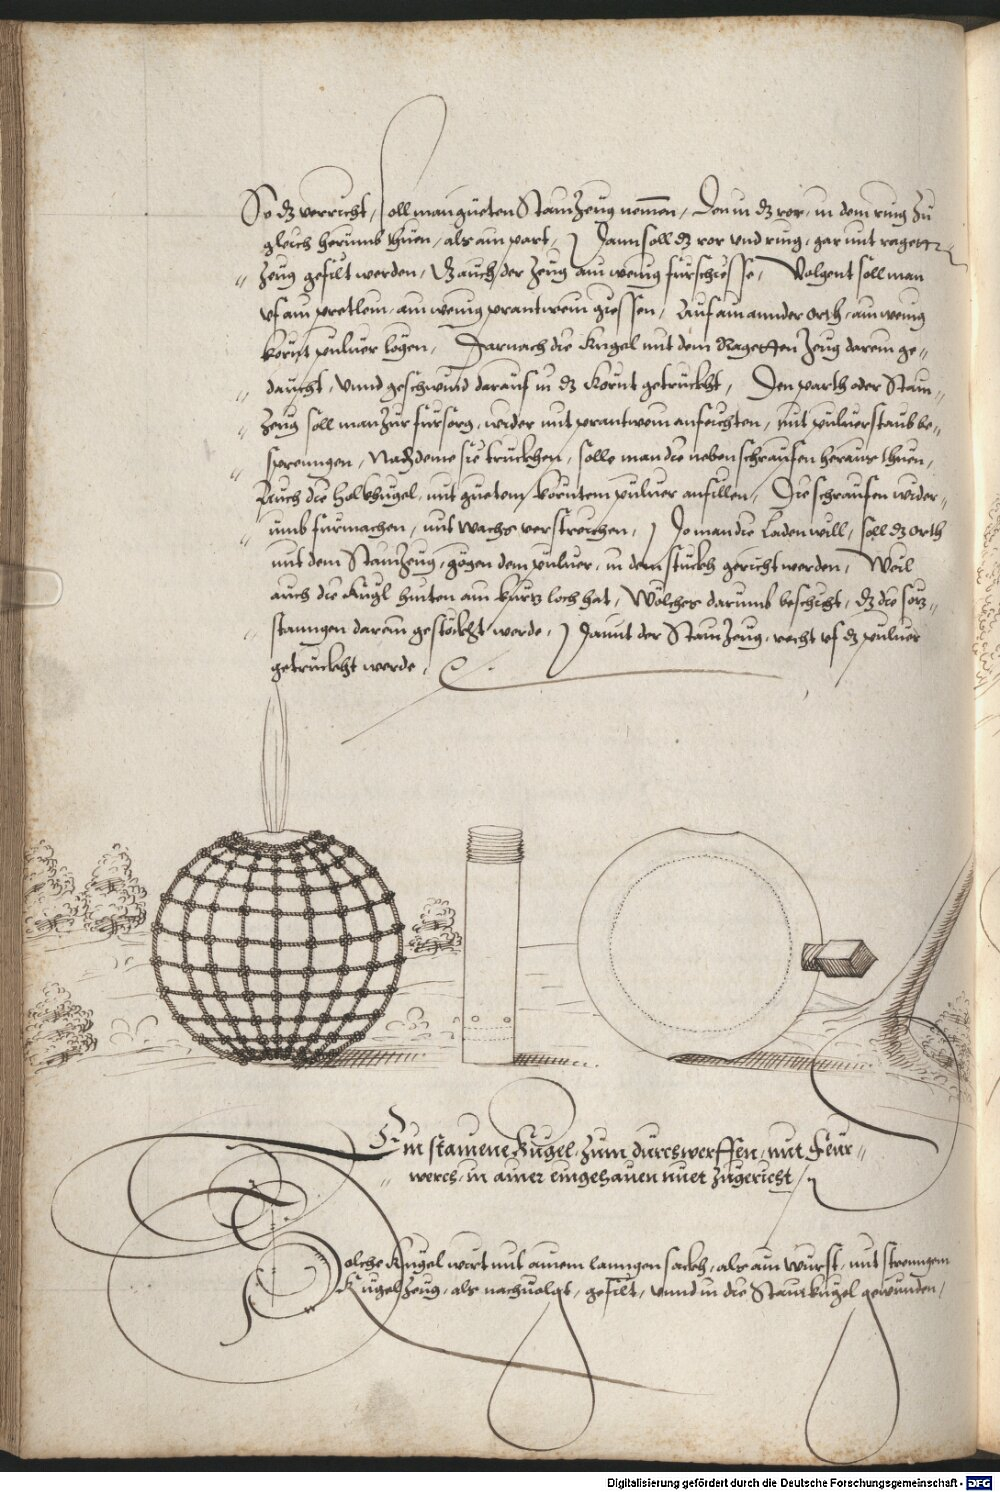 So dz verricht, soll man gueten Stam Zeug nemmen, Den in dz ror, in dem ring zu
gleich herumb thuen, als ain part, Dann soll dz ror vnd ring, gar mit ragett
Zeug gefilt werden, dz auch der Zeug ain wenig fürschiesse, Volgent soll man
vf ain pretlein, ain wenig prantwein giessen, Auf ain annder Orth, ain wenig
kornt puluer legen, Darnach die Kugel mit dem Ragetten Zeug darein ge„
daucht, vnnd geschwund darauf in dz Kornt getruckht, Den parth oder Stam„
Zeug soll man zur fürsorg, wider mit prantwein anfeichten, mit puluerstaub be„
sprenngen, Nachdeme sie truckhen, solle man die neben schraufen heraus thuen,
Auch die Holkhugel, mit guetem kornten puluer anfillen, Die schraufen wider„
umb fürmachen, mit Wachs verstreichen, So man die Laden will, soll dz Orth
mit dem Stam Zeug, gögen dem puluer, in dem stuckh gericht werden, Weil
auch die Kugl hinten ain loch hat, Wölches darumb beschicht, dz die
stanngen darein gestöckht werde, Damit der Stam Zeug, recht vf dz puluer
getruckht werde,
Ein stainene Kugel, zum durchwerffen, mit Feur„
werch, in ainer eingehauen nuet zugericht,
Solche Kugel wirt mit ainem lanngen sackh, als ain Wurst, mit strenngem
Kugel Zeug, als nachuolgt, gefilt, vnnd in die Stainkugel gewunden,
Digitalisierung gefördert durch die Deutsche Forschungsgemeinschaft - DFG